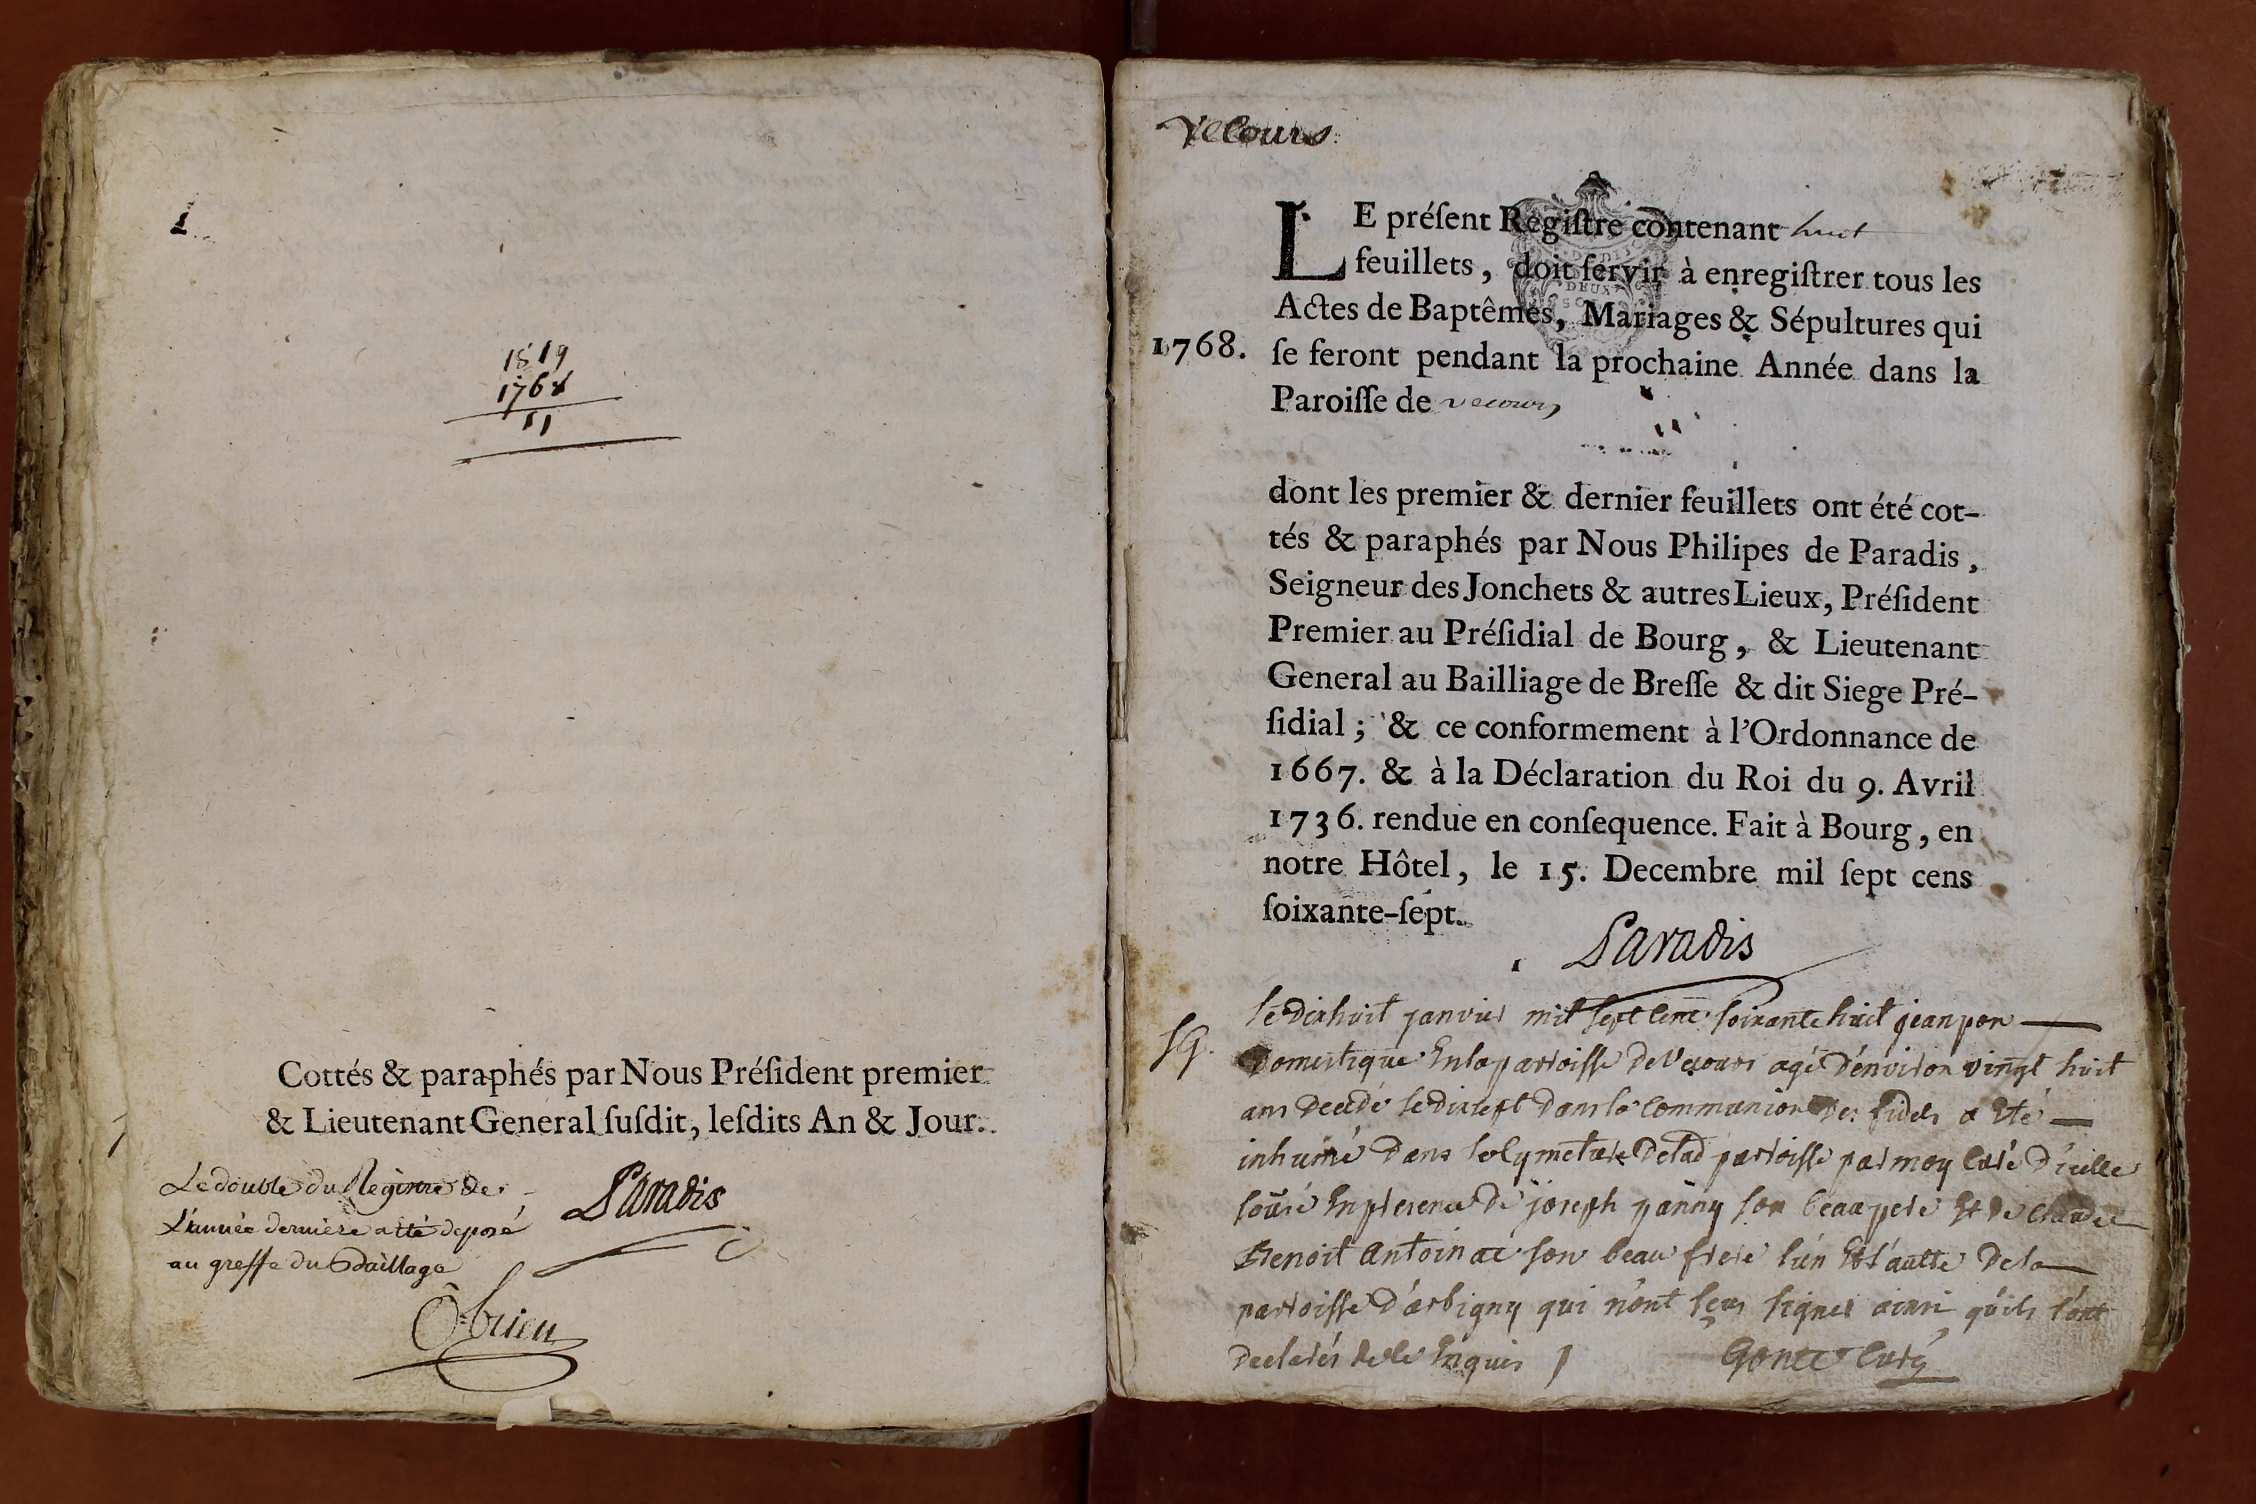 1
1819
1768
11
Cottés & paraphés par Nous Préſident premier
& Lieutenant General ſuſdit, leſdits An & Jour.
Le double du Registre de
L'année derniere a été deposé
au greffe du Bailliage
Paradis
Obrien
Vecours
LE préſent Regiſtre contenant huit
feuillets, doit ſervir à enregiſtrer tous les
Actes de Baptêmes, Mariages & Sépultures qui
1768. ſe feront pendant la prochaine Année dans la
Paroiſſe de vecours
dont les premier & dernier feuillets ont été cot-
tés & paraphés par Nous Philipes de Paradis,
Seigneur des Jonchets & autres Lieux, Préſident
Premier au Préſidial de Bourg, & Lieutenant
General au Bailliage de Breſſe & dit Siege Pré-
ſidial; & ce conformement à l'Ordonnance de
1667. & à la Déclaration du Roi du 9. Avril
1736. rendue en conſequence. Fait à Bourg, en
notre Hôtel, le 15. Decembre mil ſept cens
ſoixante-ſept.
Paradis
le dixhuit janvier mil sept cent soixante huit jean pon
domestique en la parroisse de Vecours agé d'environ vingt huit
ans decedé le dix sept dans la communion des fidels a eté
inhumé dans le cymetiere de lad parroisse par moy curé d'icelle
en presence de joseph panny son beaupere et de claude
Benoit Antoin son beau frere l'un et l'autre de la
parroisse d'arbigny qui n'ont sçeu signer ainsi qu'ils l'ont
declarés de ce enquis
Gonet curé